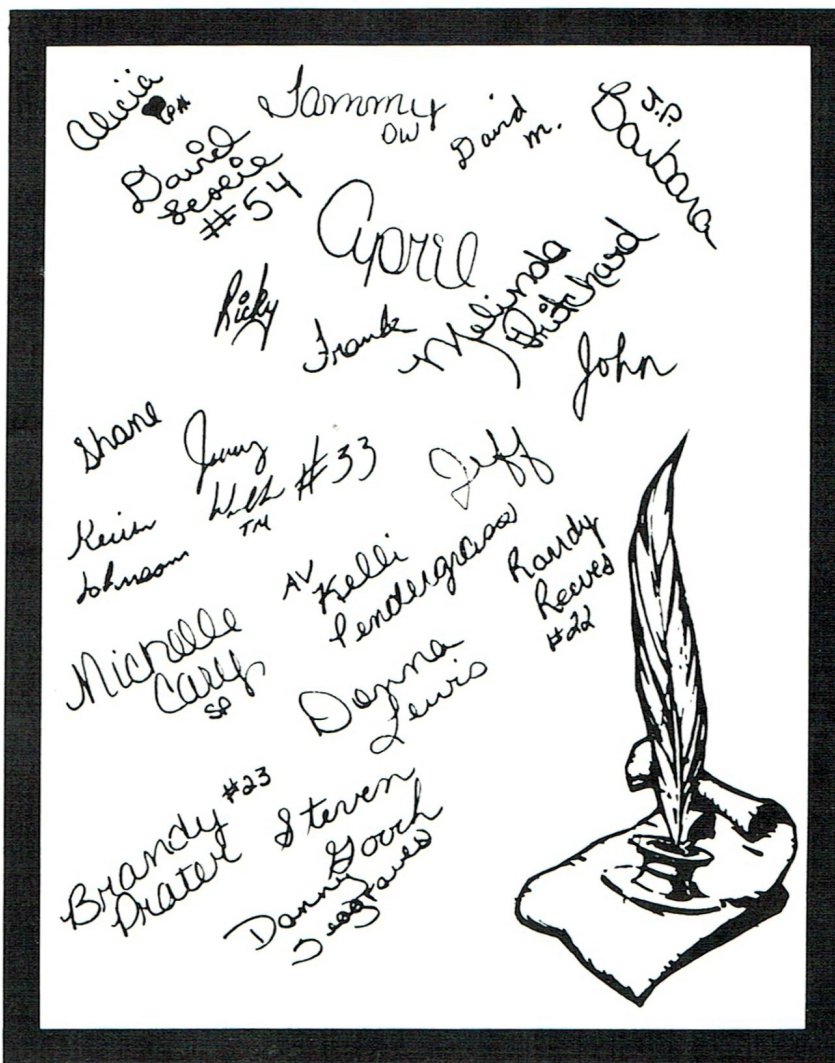 Alicia
Tammy
DW
David
M.
J.P.
Barbara
David
#54
April
Ricky
Frank
Melinda
Pritchard
John
Shane
#33
TM
Jeff
Kevin
Johnson
AV Kelli
Pendergrass
Randy
Reeves
#22
Michelle
Cary
SP
Donna
Lewis
Brandy #23
Prater
Steven
Gooch
Danny
Seagraves